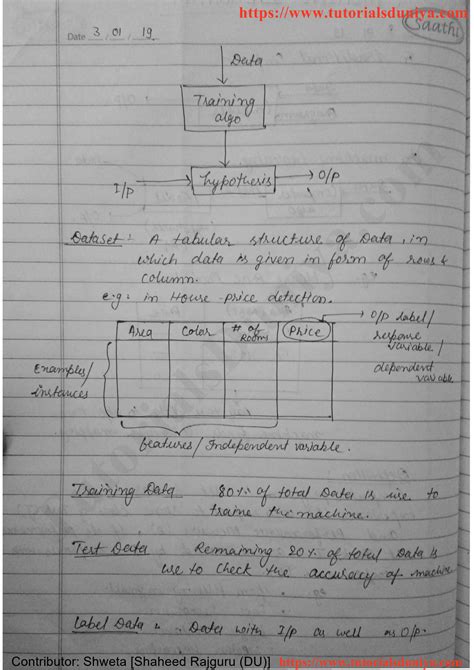 https://www.tutorialsduniya.com
Date 3 / 01 / 19
Saathi
Data
Training
algo
I/P
hypothesis
O/P
Dataset : A tabular structure of Data, in
which data is given in form of rows &
column.
e.g: in House-price detection.
Area
Color
# of
Rooms
Price
O/P label/
response
variable/
dependent
variable
Examples/
instances
features/Independent variable.
Training Data 80% of total Data is use to
traine the machine.
Test Data Remaining 20% of total Data is
use to check the accuracy of machine
Label Data Data with I/P as well as O/P.
Contributor: Shweta [Shaheed Rajguru (DU)]
https://www.tutorialsduniya.com